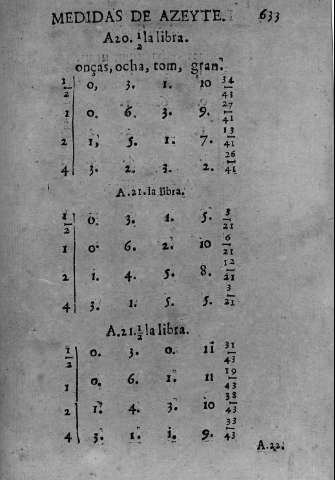 MEDIDAS DE AZEYTE. 633
A20. 1/2 la libra.
onças, ocha, tom, gran.
1/2 0, 3. 1. 10 34/41
1 0. 6. 3. 9. 27/41
2 1, 5. 1. 7. 13/41
4 3. 2. 3. 2. 26/41
A.21. la libra.
1/2 0. 3. 1. 5. 3/21
1 0. 6. 2. 10 6/21
2 1. 4. 5. 8. 12/21
4 3. 1. 5. 5. 3/21
A.21. 1/2 la libra.
1/2 0. 3. 0. 11 31/43
1 0. 6. 1. 11 19/43
2 1. 4. 3. 10 38/43
4 3. 1. 1. 9. 33/43
A.22.